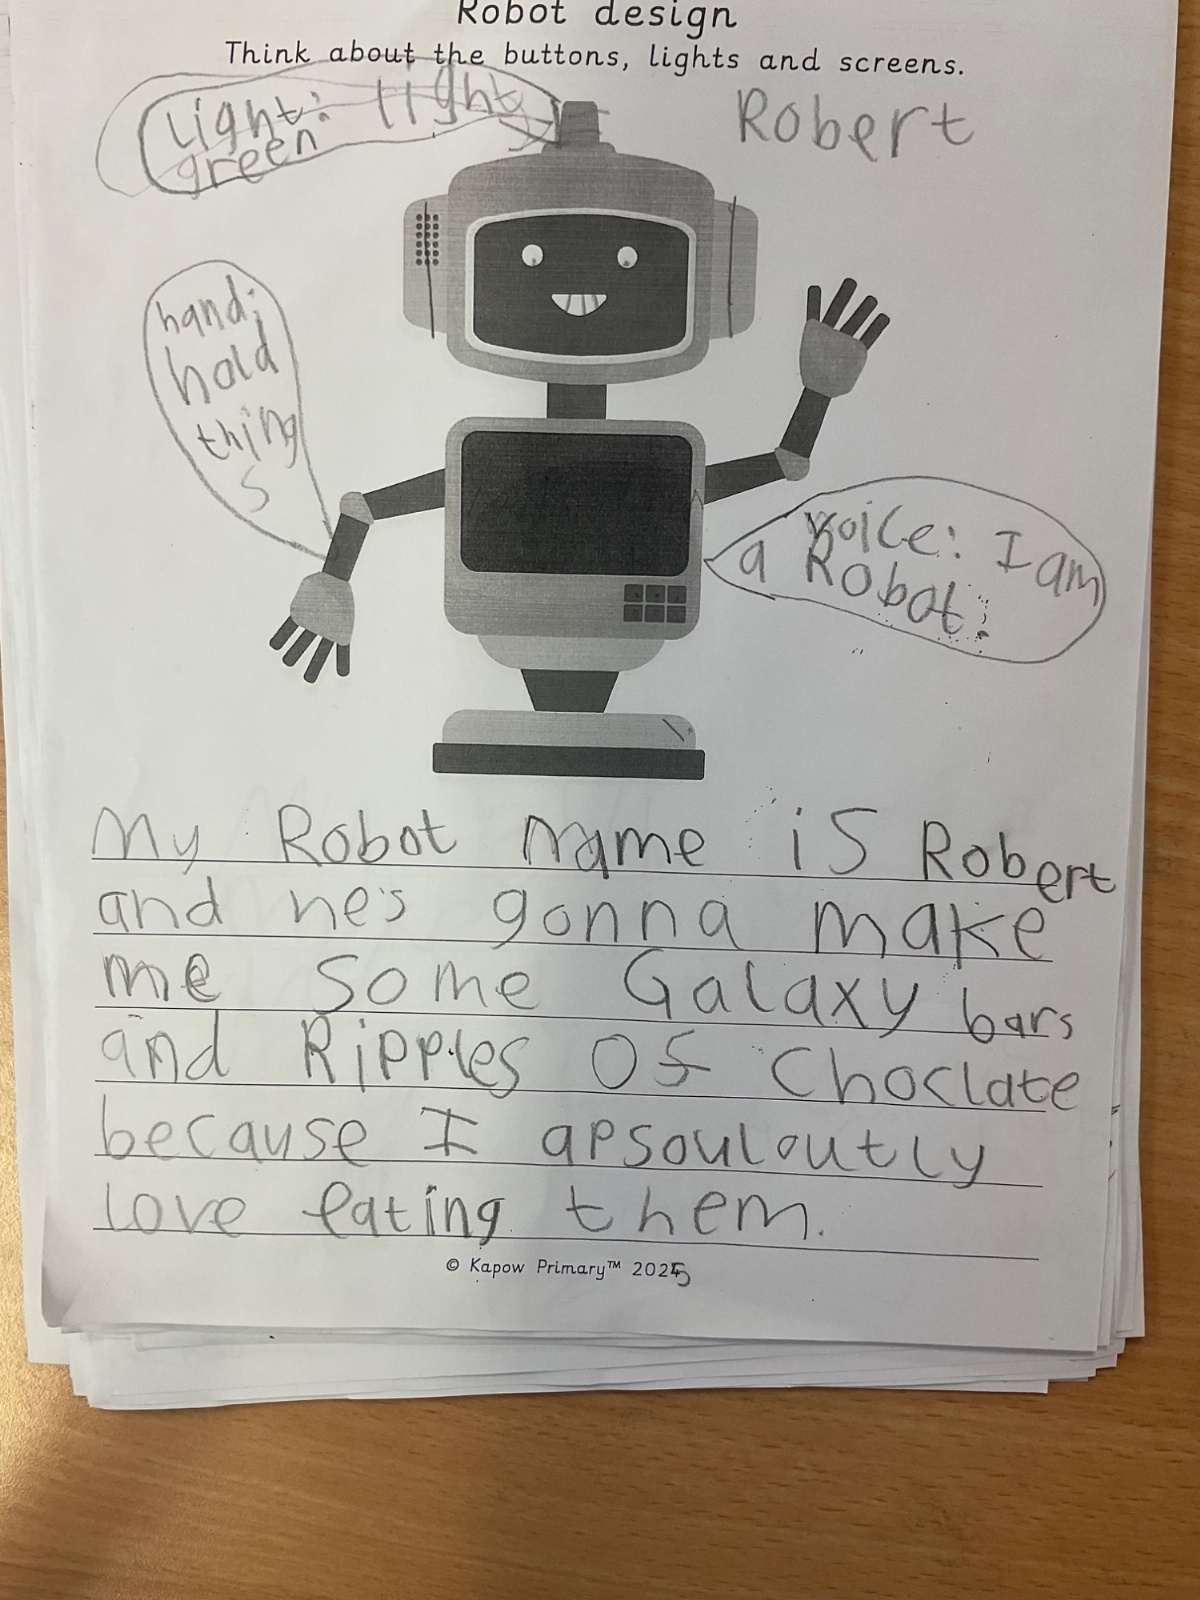 Robot design
Think about the buttons, lights and screens.
Light: light
green
Robert
hand:
hold
thing
s
voice: I am
a Robot.
My Robot name is Robert
and he's gonna make
me some Galaxy bars
and Ripples of Choclate
because I apsouloutly
love eating them.
© Kapow Primary™ 2025